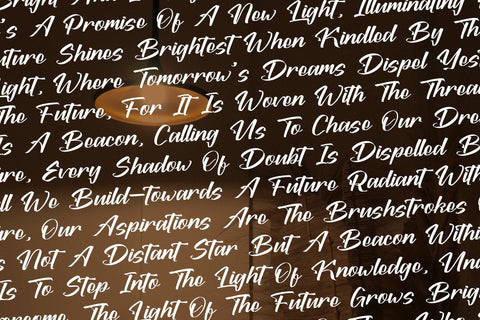 's A Promise Of A New Light, Illuminating
Shines Brightest When Kindled By
Where Tomorrow's Dreams Dispel
The Future, For It Is Woven With The
Is A Beacon, Calling Us To Chase Our
Every Shadow Of Doubt Is Dispelled
We Build—towards A Future Radiant
Our Aspirations Are The Brushstrokes
Not A Distant Star But A Beacon
Is To Step Into The Light Of Knowledge,
The Light Of The Future Grows